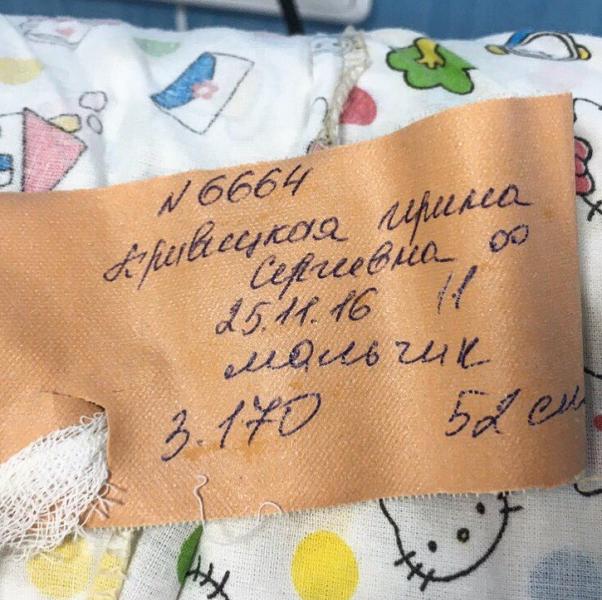 N 6664
Кривицкая Ирина
Сергеевна
25.11.16 11 00
мальчик
3.170 52 см